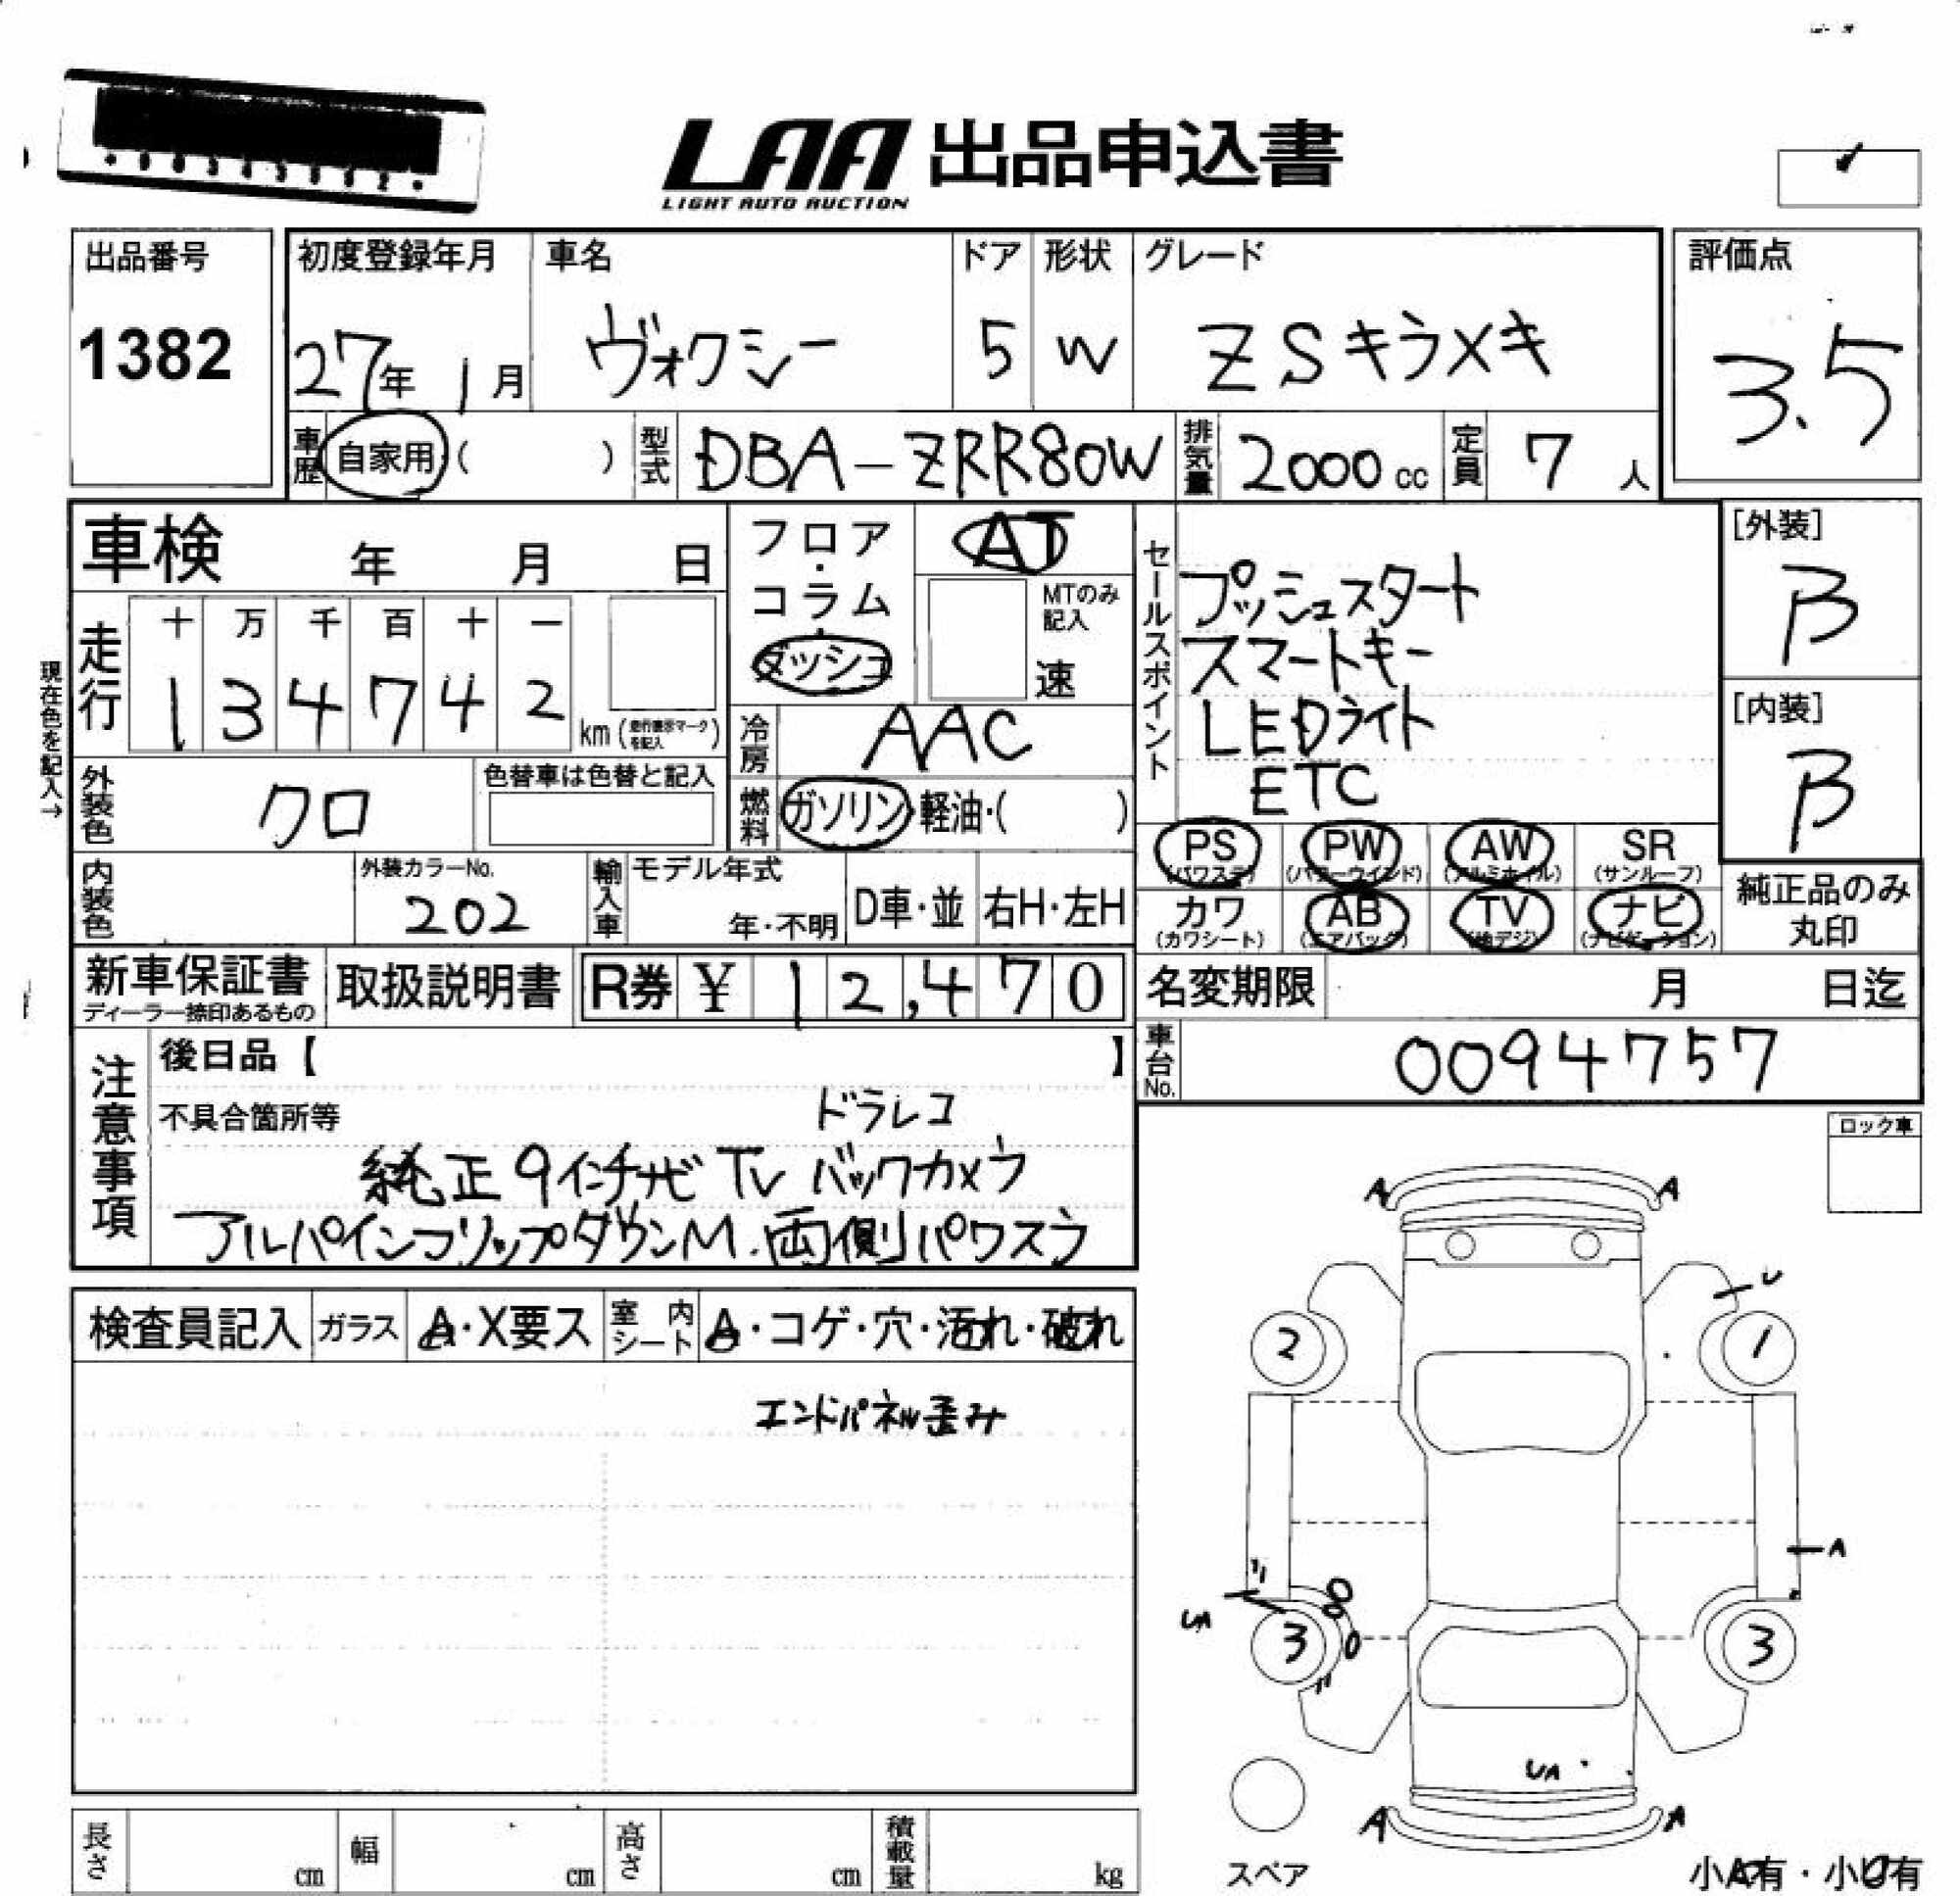 LAA 出品申込書
LIGHT AUTO AUCTION
出品番号
1382
初度登録年月
27年 1月
車名
ヴォクシー
ドア
5
形状
W
グレード
ZSキラメキ
評価点
3.5
車歴 自家用 ( )
型式 DBA-ZRR80W
排気量 2000 cc
定員 7 人
車検 年 月 日
フロア・コラム・ダッシュ
AT
MTのみ記入
速
セールスポイント
プッシュスタート
スマートキー
LEDライト
ETC
[外装]
B
[内装]
B
現在色を記入→
走行
十 万 千 百 十 一
1 3 4 7 4 2
km (走行表示マークを記入)
冷房 AAC
外装色 クロ
色替車は色替と記入
燃料 ガソリン・軽油・( )
PS (パワステ) PW (パワーウインド) AW (アルミホイル) SR (サンルーフ)
カワ (カワシート) AB (エアバッグ) TV (地デジ) ナビ (ナビゲーション)
純正品のみ
丸印
内装色
外装カラーNo.
202
輸入車
モデル年式
年・不明
D車・並
右H・左H
新車保証書
ディーラー捺印あるもの
取扱説明書
R券 ¥ 12,470
名変期限 月 日迄
車台No. 0094757
注意事項
後日品【 】
不具合箇所等 ドラレコ
純正9インチナビ TV バックカメラ
アルパインフリップダウンM.両側パワスラ
ロック車
検査員記入
ガラス A・X要ス
室内シート A・コゲ・穴・汚れ・破れ
エンドパネル歪み
A A
U
2 1
A
UA
3 3
UA
A A
スペア
小A有・小U有
長さ cm
幅 cm
高さ cm
積載量 kg